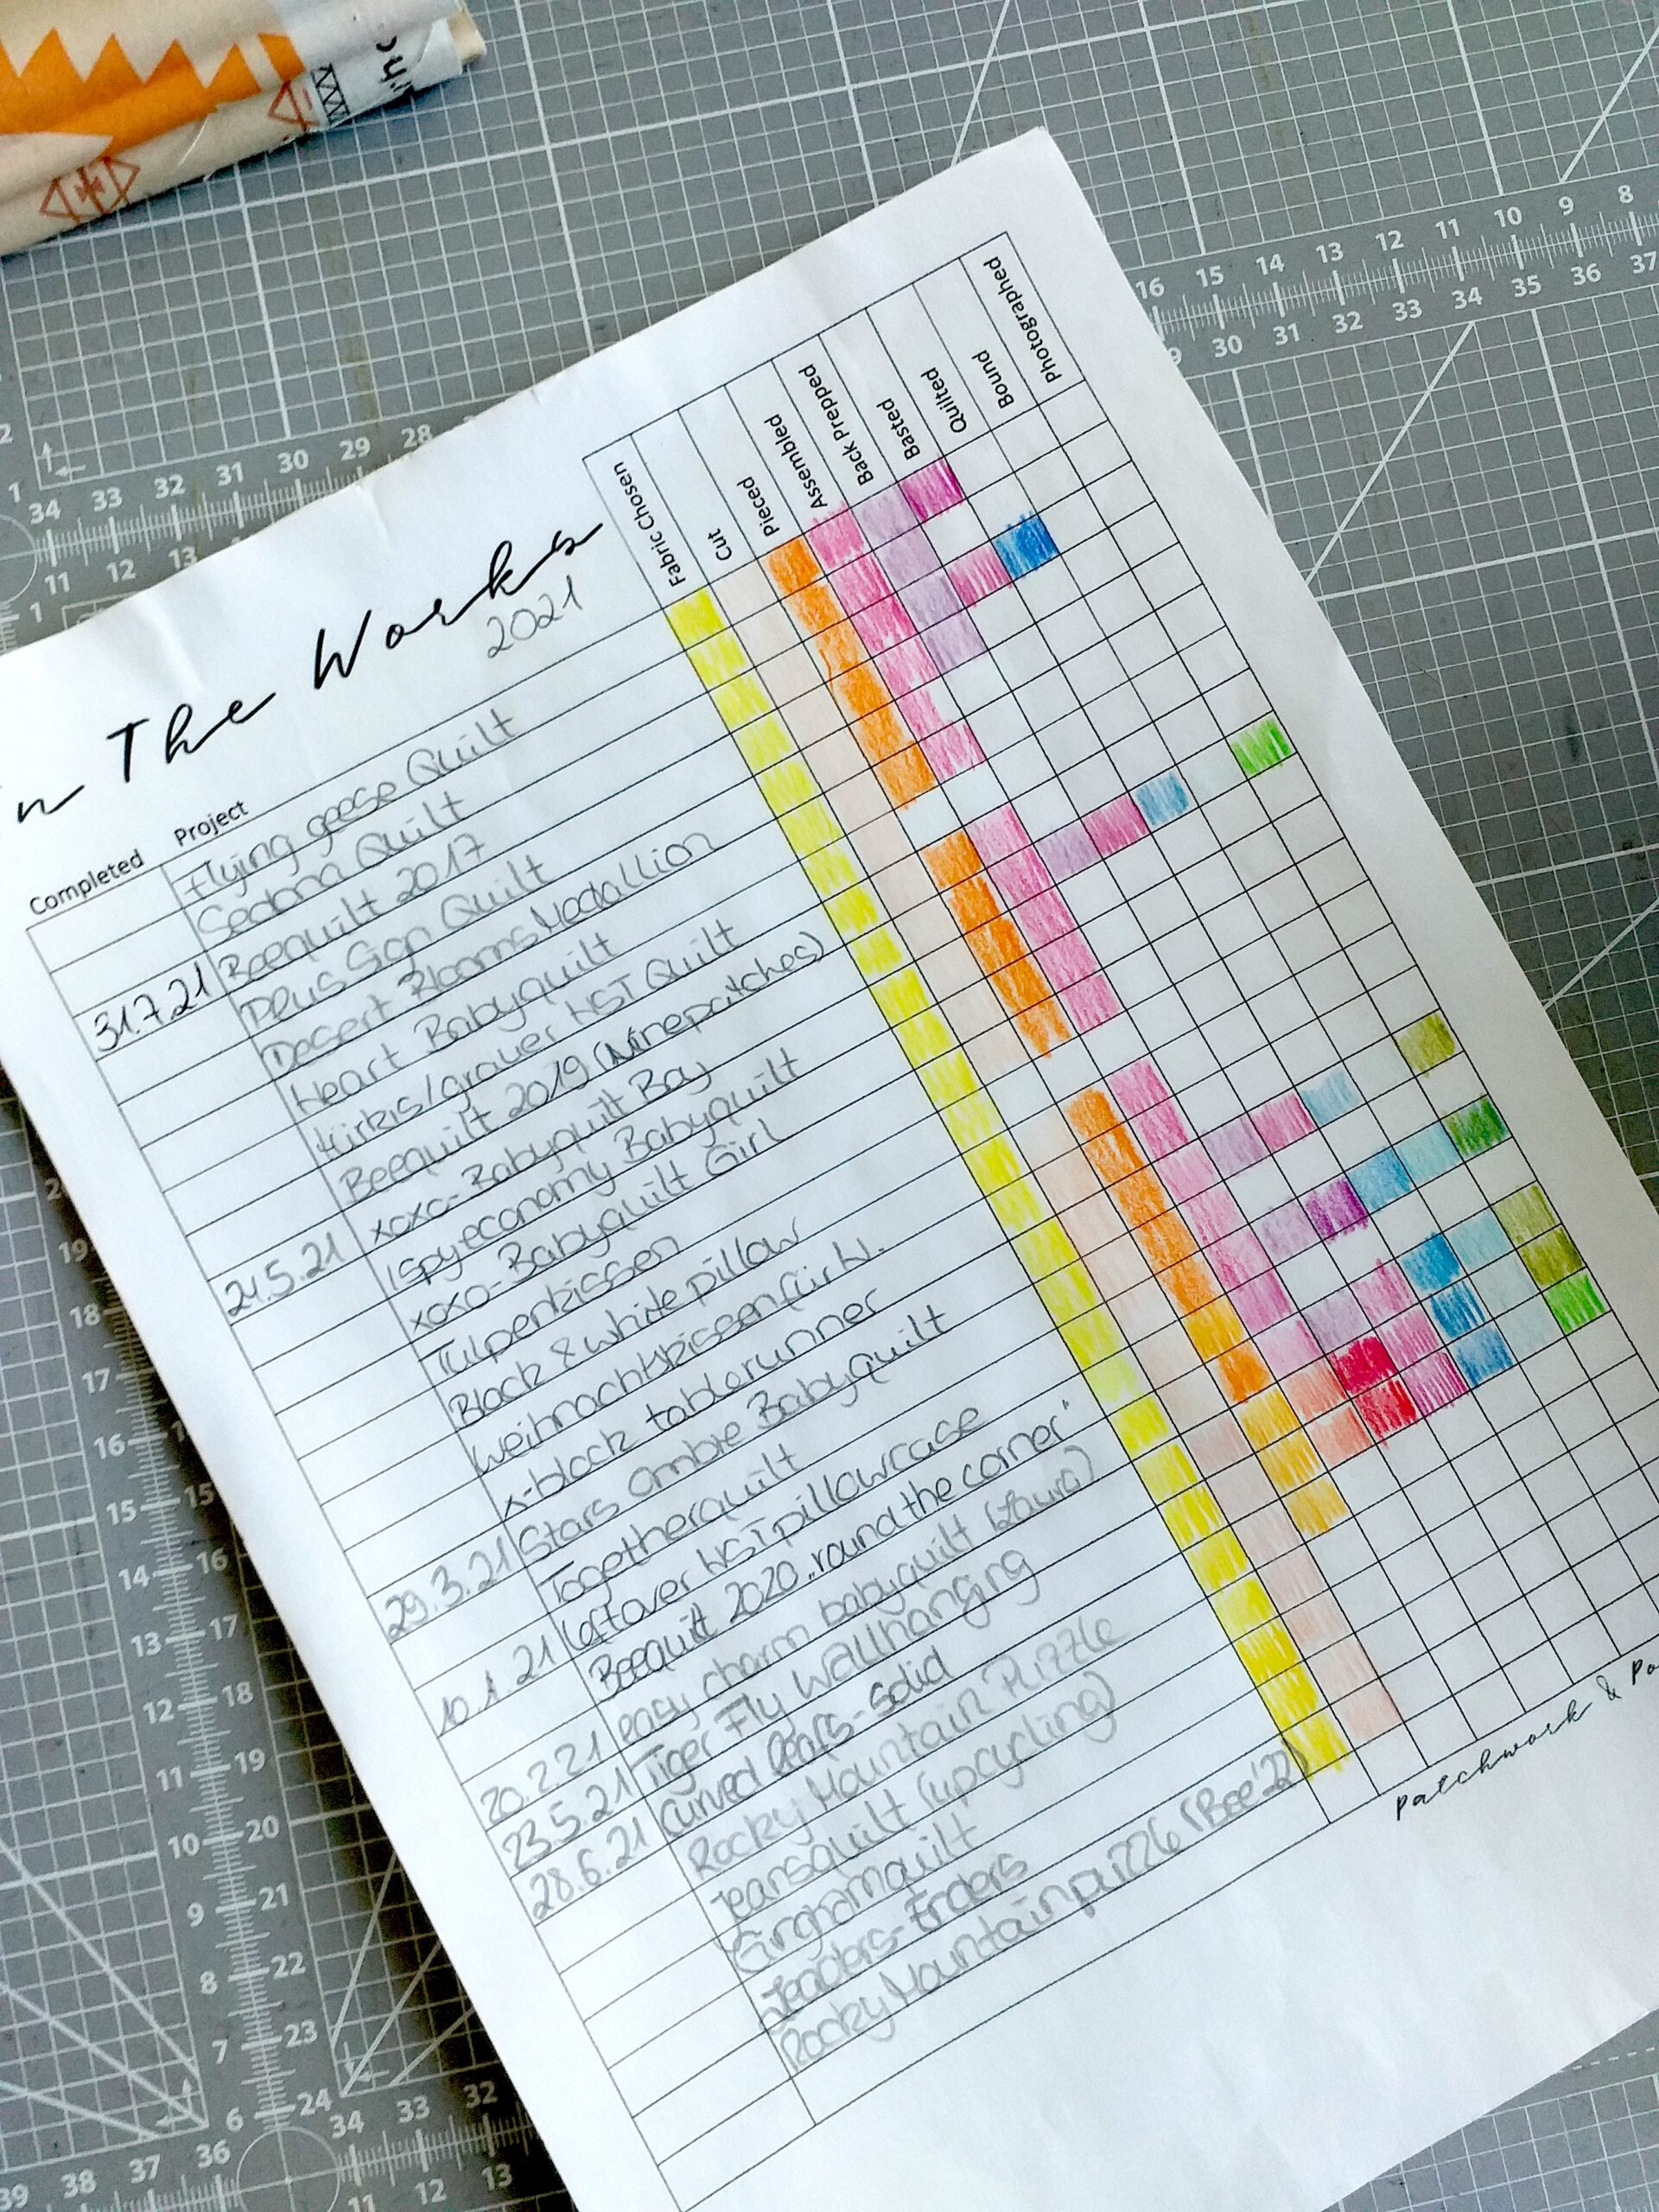 In The Works
2021
Completed Project Fabric Chosen Cut Pieced Assembled Back Prepped Basted Quilted Bound Photographed
Flying geese Quilt
Sedona Quilt
31.7.21 Beequilt 2017
Plus Sign Quilt
Desert Blooms Medallion
Heart Babyquilt
türkis/grauer HST Quilt
Beequilt 2019 (Ninepatches)
24.5.21 xoxo-Babyquilt Boy
I spy economy Babyquilt
xoxo-Babyquilt Girl
Tulpenkissen
Black & white pillow
Weihnachtskissen für W.
x-block tablerunner
29.3.21 Stars Ombre Babyquilt
Togetherquilt
10.1.21 Leftover HST pillowcase
Beequilt 2020 „round the corner"
20.2.21 easy charm babyquilt (Laura)
23.5.21 Tiger Fly Wallhanging
28.6.21 Curved leafs-solid
Rocky Mountain Puzzle
Jeansquilt (upcycling)
Ginghamquilt
Leaders-Enders
Rocky Mountainpuzzle (Bee'22)
Patchwork &
2
1
34 33 32 31 30 29 28
11 12 13
16 15 14 13 12 11 10 9 8
9 30 31 32 33 34 35 36 37
19
18
17
16 15
15
14 16
13 17
12 18
11 19
10 20
9 21
8 22
7 23
6 24
39 38 37 36 34 33 32
11 12 13